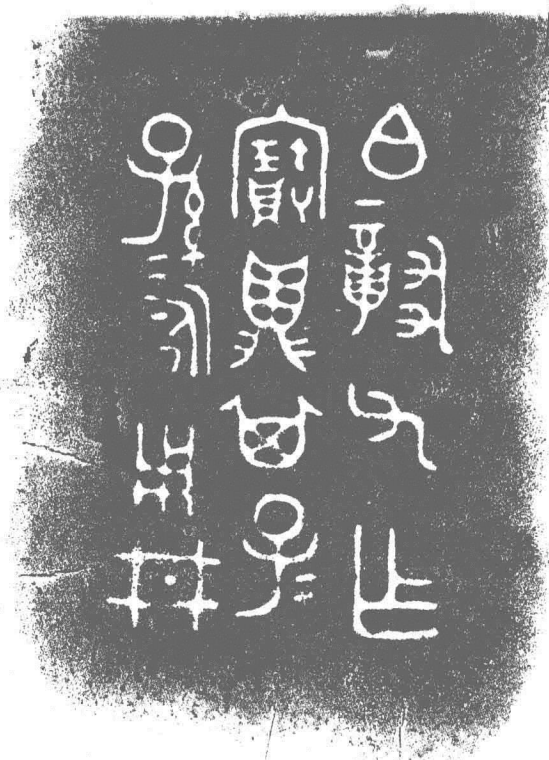 白父乍
寶鼎其子=
孫=永用丼